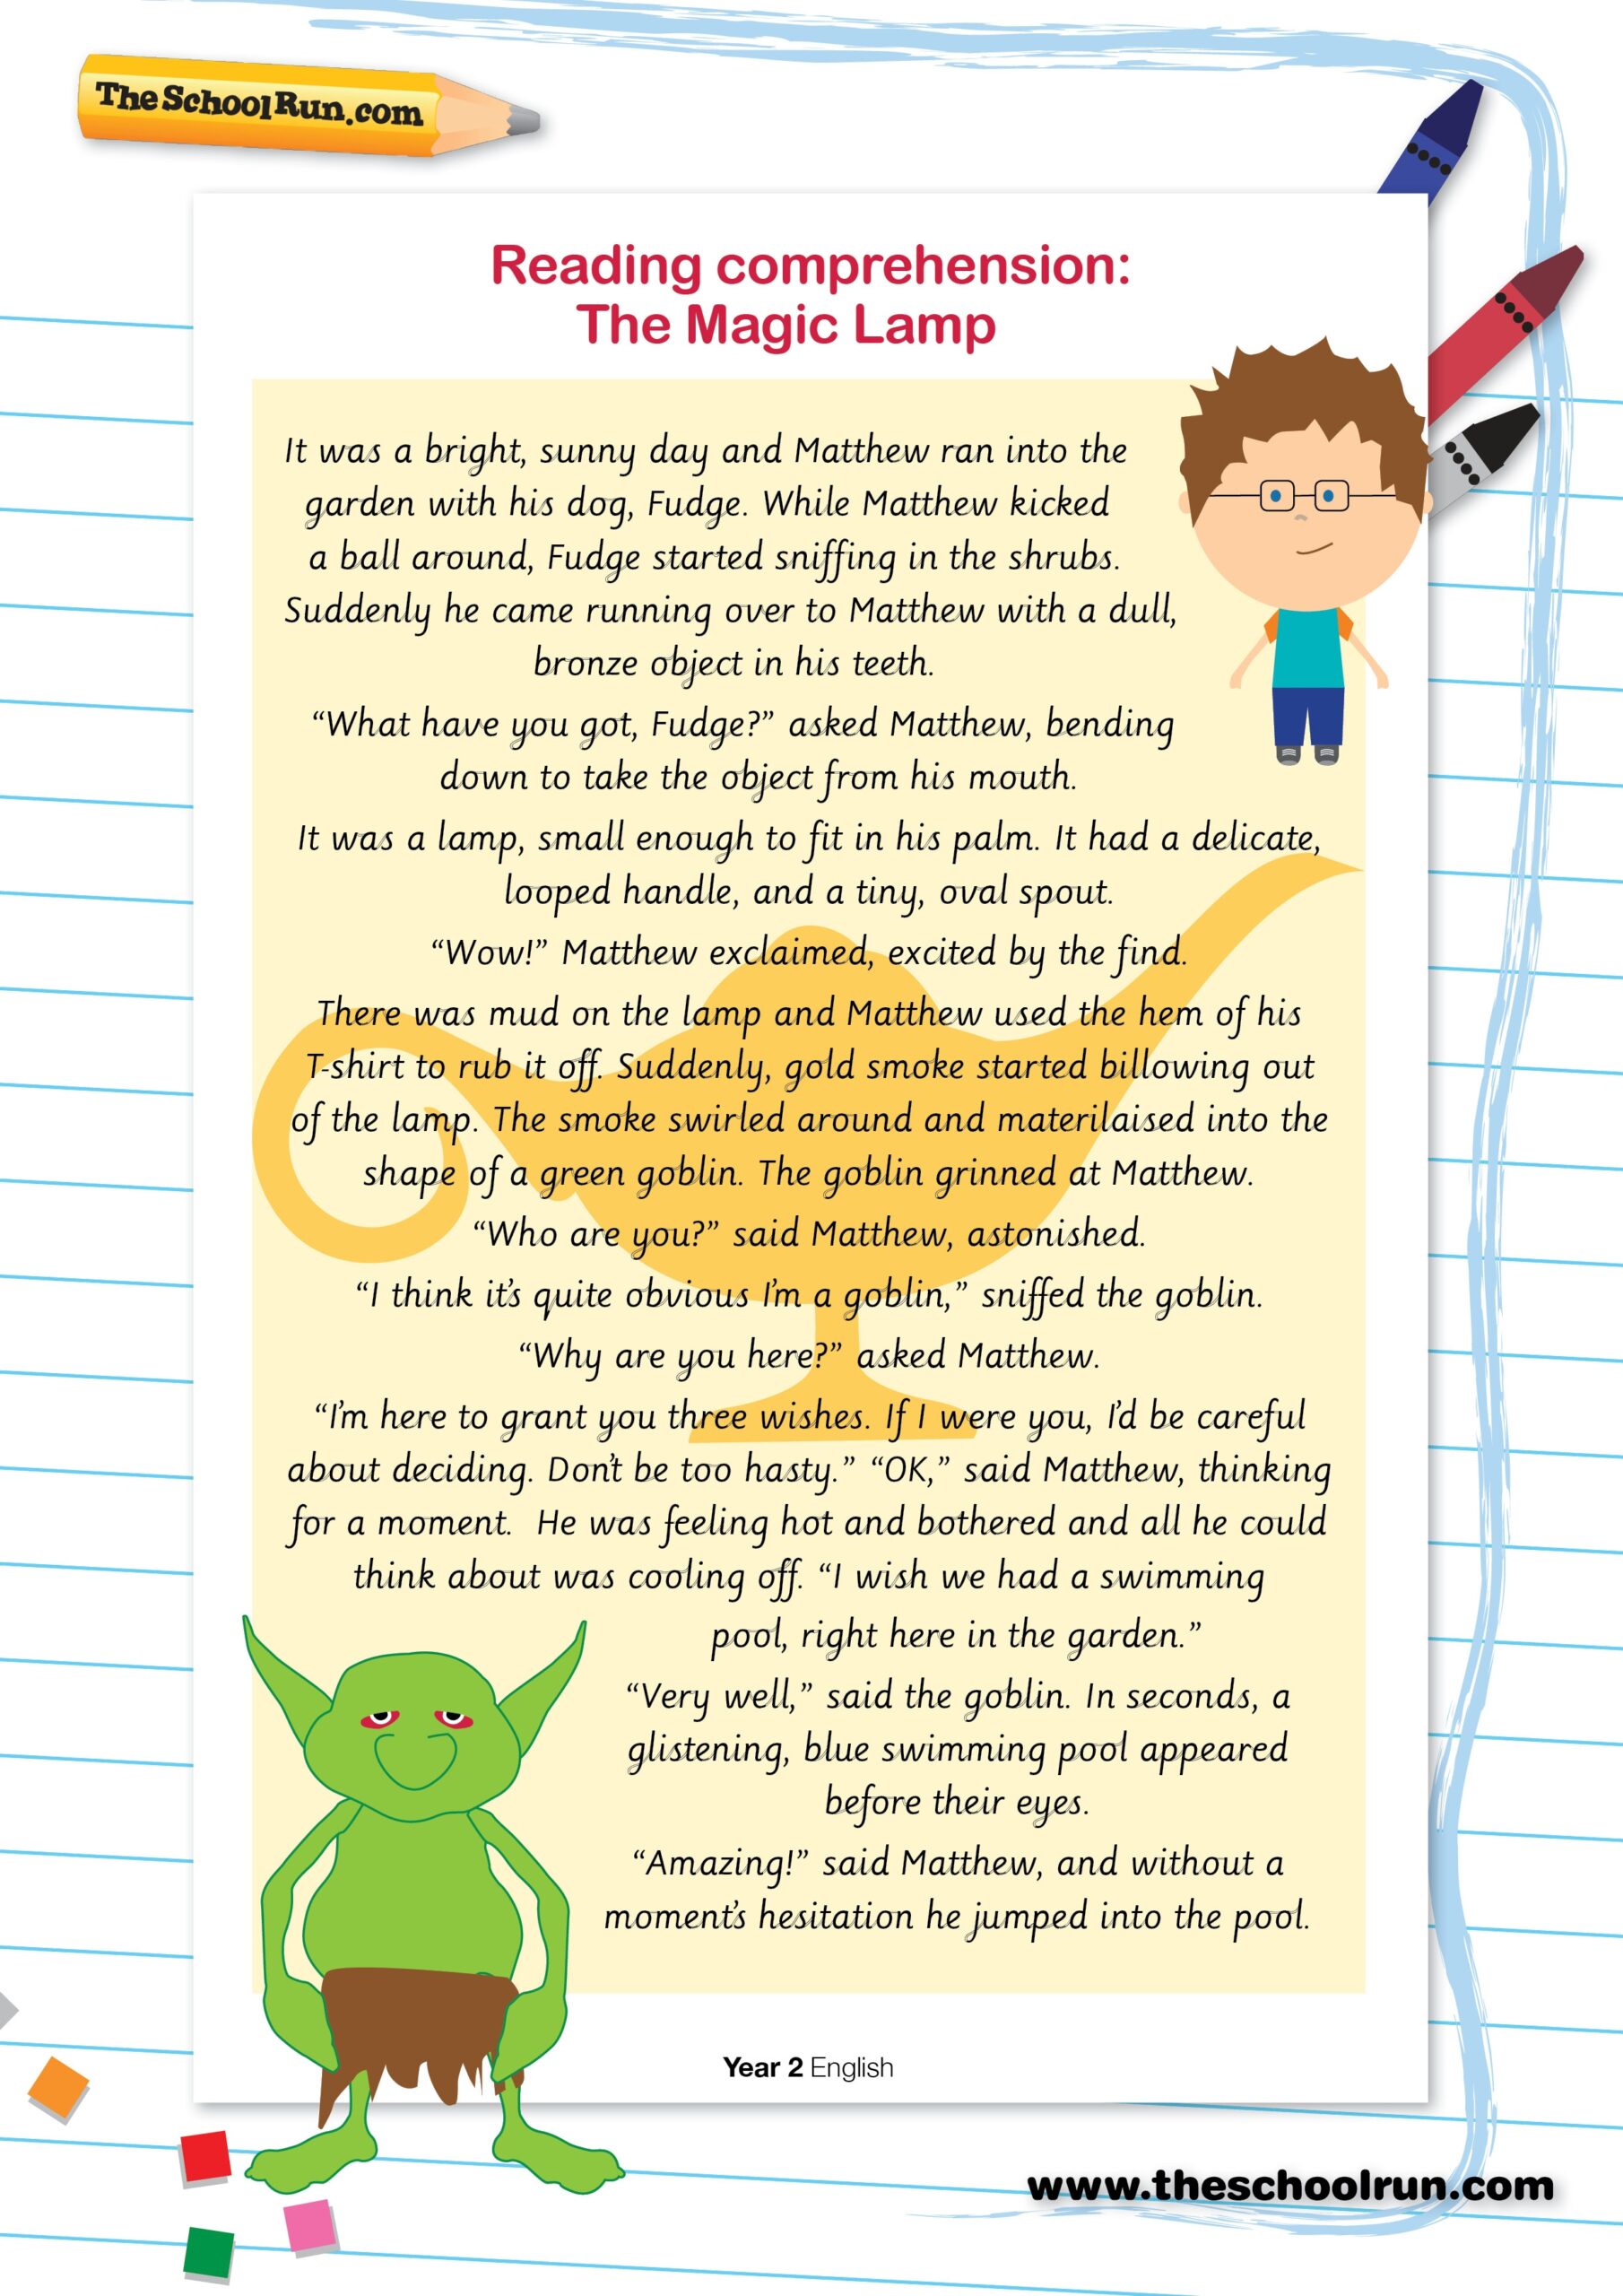 TheSchoolRun.com
Reading comprehension:
The Magic Lamp
It was a bright, sunny day and Matthew ran into the
garden with his dog, Fudge. While Matthew kicked
a ball around, Fudge started sniffing in the shrubs.
Suddenly he came running over to Matthew with a dull,
bronze object in his teeth.
“What have you got, Fudge?” asked Matthew, bending
down to take the object from his mouth.
It was a lamp, small enough to fit in his palm. It had a delicate,
looped handle, and a tiny, oval spout.
“Wow!” Matthew exclaimed, excited by the find.
There was mud on the lamp and Matthew used the hem of his
T-shirt to rub it off. Suddenly, gold smoke started billowing out
of the lamp. The smoke swirled around and materilaised into the
shape of a green goblin. The goblin grinned at Matthew.
“Who are you?” said Matthew, astonished.
“I think it’s quite obvious I’m a goblin,” sniffed the goblin.
“Why are you here?” asked Matthew.
“I’m here to grant you three wishes. If I were you, I’d be careful
about deciding. Don’t be too hasty.” “OK,” said Matthew, thinking
for a moment.  He was feeling hot and bothered and all he could
think about was cooling off. “I wish we had a swimming
pool, right here in the garden.”
“Very well,” said the goblin. In seconds, a
glistening, blue swimming pool appeared
before their eyes.
“Amazing!” said Matthew, and without a
moment’s hesitation he jumped into the pool.
Year 2 English
www.theschoolrun.com